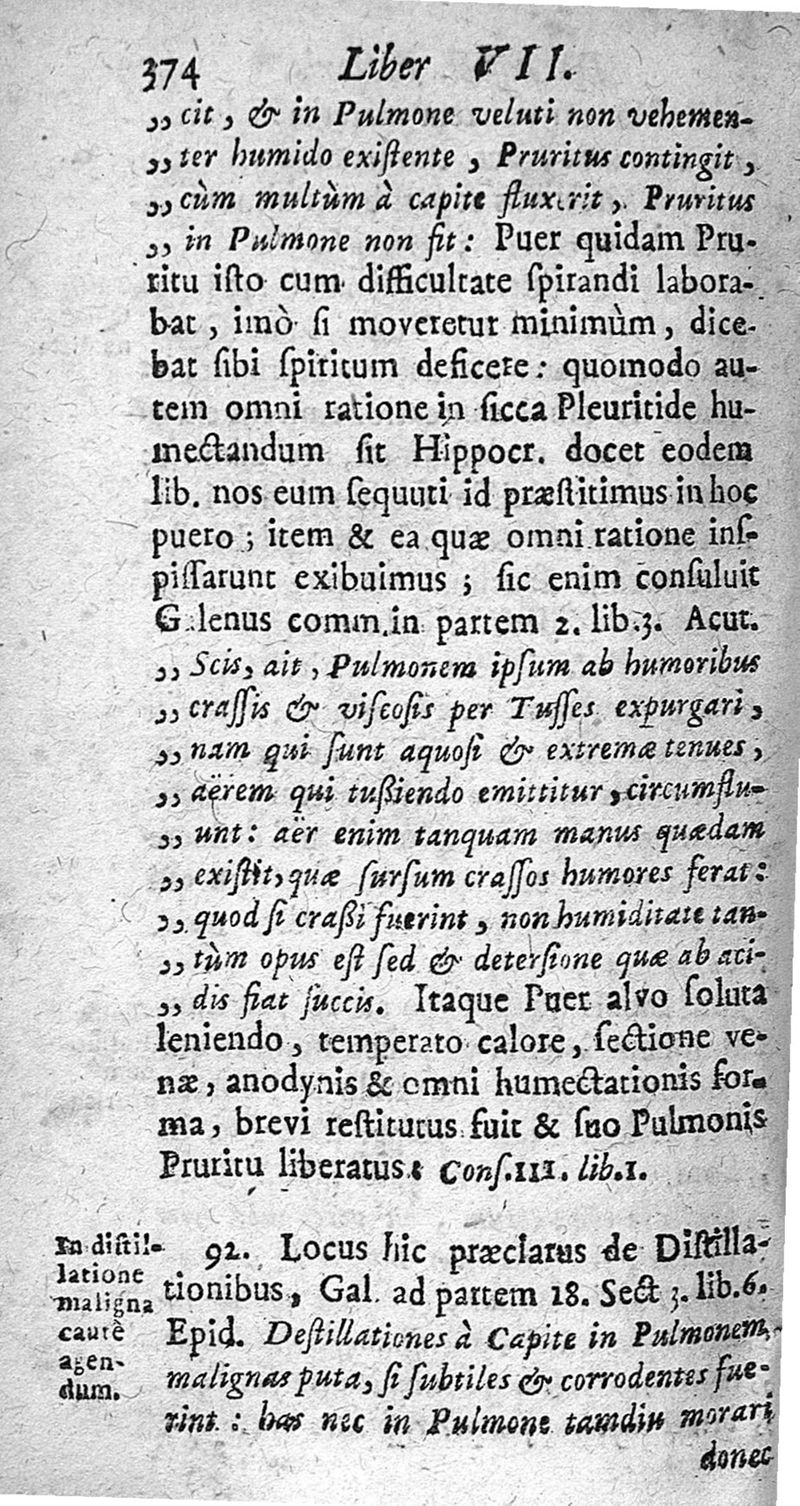 374 Liber VII.
,, cit, & in Pulmone veluti non vehemen-
,, ter humido exiſtente, Pruritus contingit,
,, cùm multùm à capite fluxerit, Pruritus
,, in Pulmone non fit: Puer quidam Pru-
ritu iſto cum difficultate ſpirandi labora-
bat, imò ſi moveretur minimùm, dice-
bat ſibi ſpiritum deficere: quomodo au-
tem omni ratione in ſicca Pleuritide hu-
mectandum ſit Hippocr. docet eodem
lib. nos eum ſequuti id præſtitimus in hoc
puero; item & ea quæ omni ratione inſ-
piſſarunt exibuimus; ſic enim conſuluit
Galenus comm. in partem 2. lib. 3. Acut.
,, Scis, ait, Pulmonem ipſum ab humoribus
,, craſſis & viſcoſis per Tuſſes expurgari,
,, nam qui ſunt aquoſi & extremæ tenues,
,, aërem qui tußiendo emittitur, circumflu-
,, unt: aër enim tanquam manus quædam
,, exiſtit, quæ ſurſum craſſos humores ferat:
,, quod ſi craßi fuerint, non humiditate tan-
,, tùm opus eſt ſed & deterſione quæ ab aci-
,, dis fiat ſuccis. Itaque Puer alvo ſoluta
leniendo, temperato calore, ſectione ve-
næ, anodynis & omni humectationis for-
ma, brevi reſtitutus fuit & ſuo Pulmonis
Pruritu liberatus. Conſ. III. lib. 1.
In diſtil-
latione
maligna
cautè
agen-
dum.
92. Locus hic præclarus de Diſtilla-
tionibus, Gal. ad partem 18. Sect 3. lib. 6.
Epid. Deſtillationes à Capite in Pulmonem,
malignas puta, ſi ſubtiles & corrodentes fue-
rint: has nec in Pulmone tamdiu morari
donec